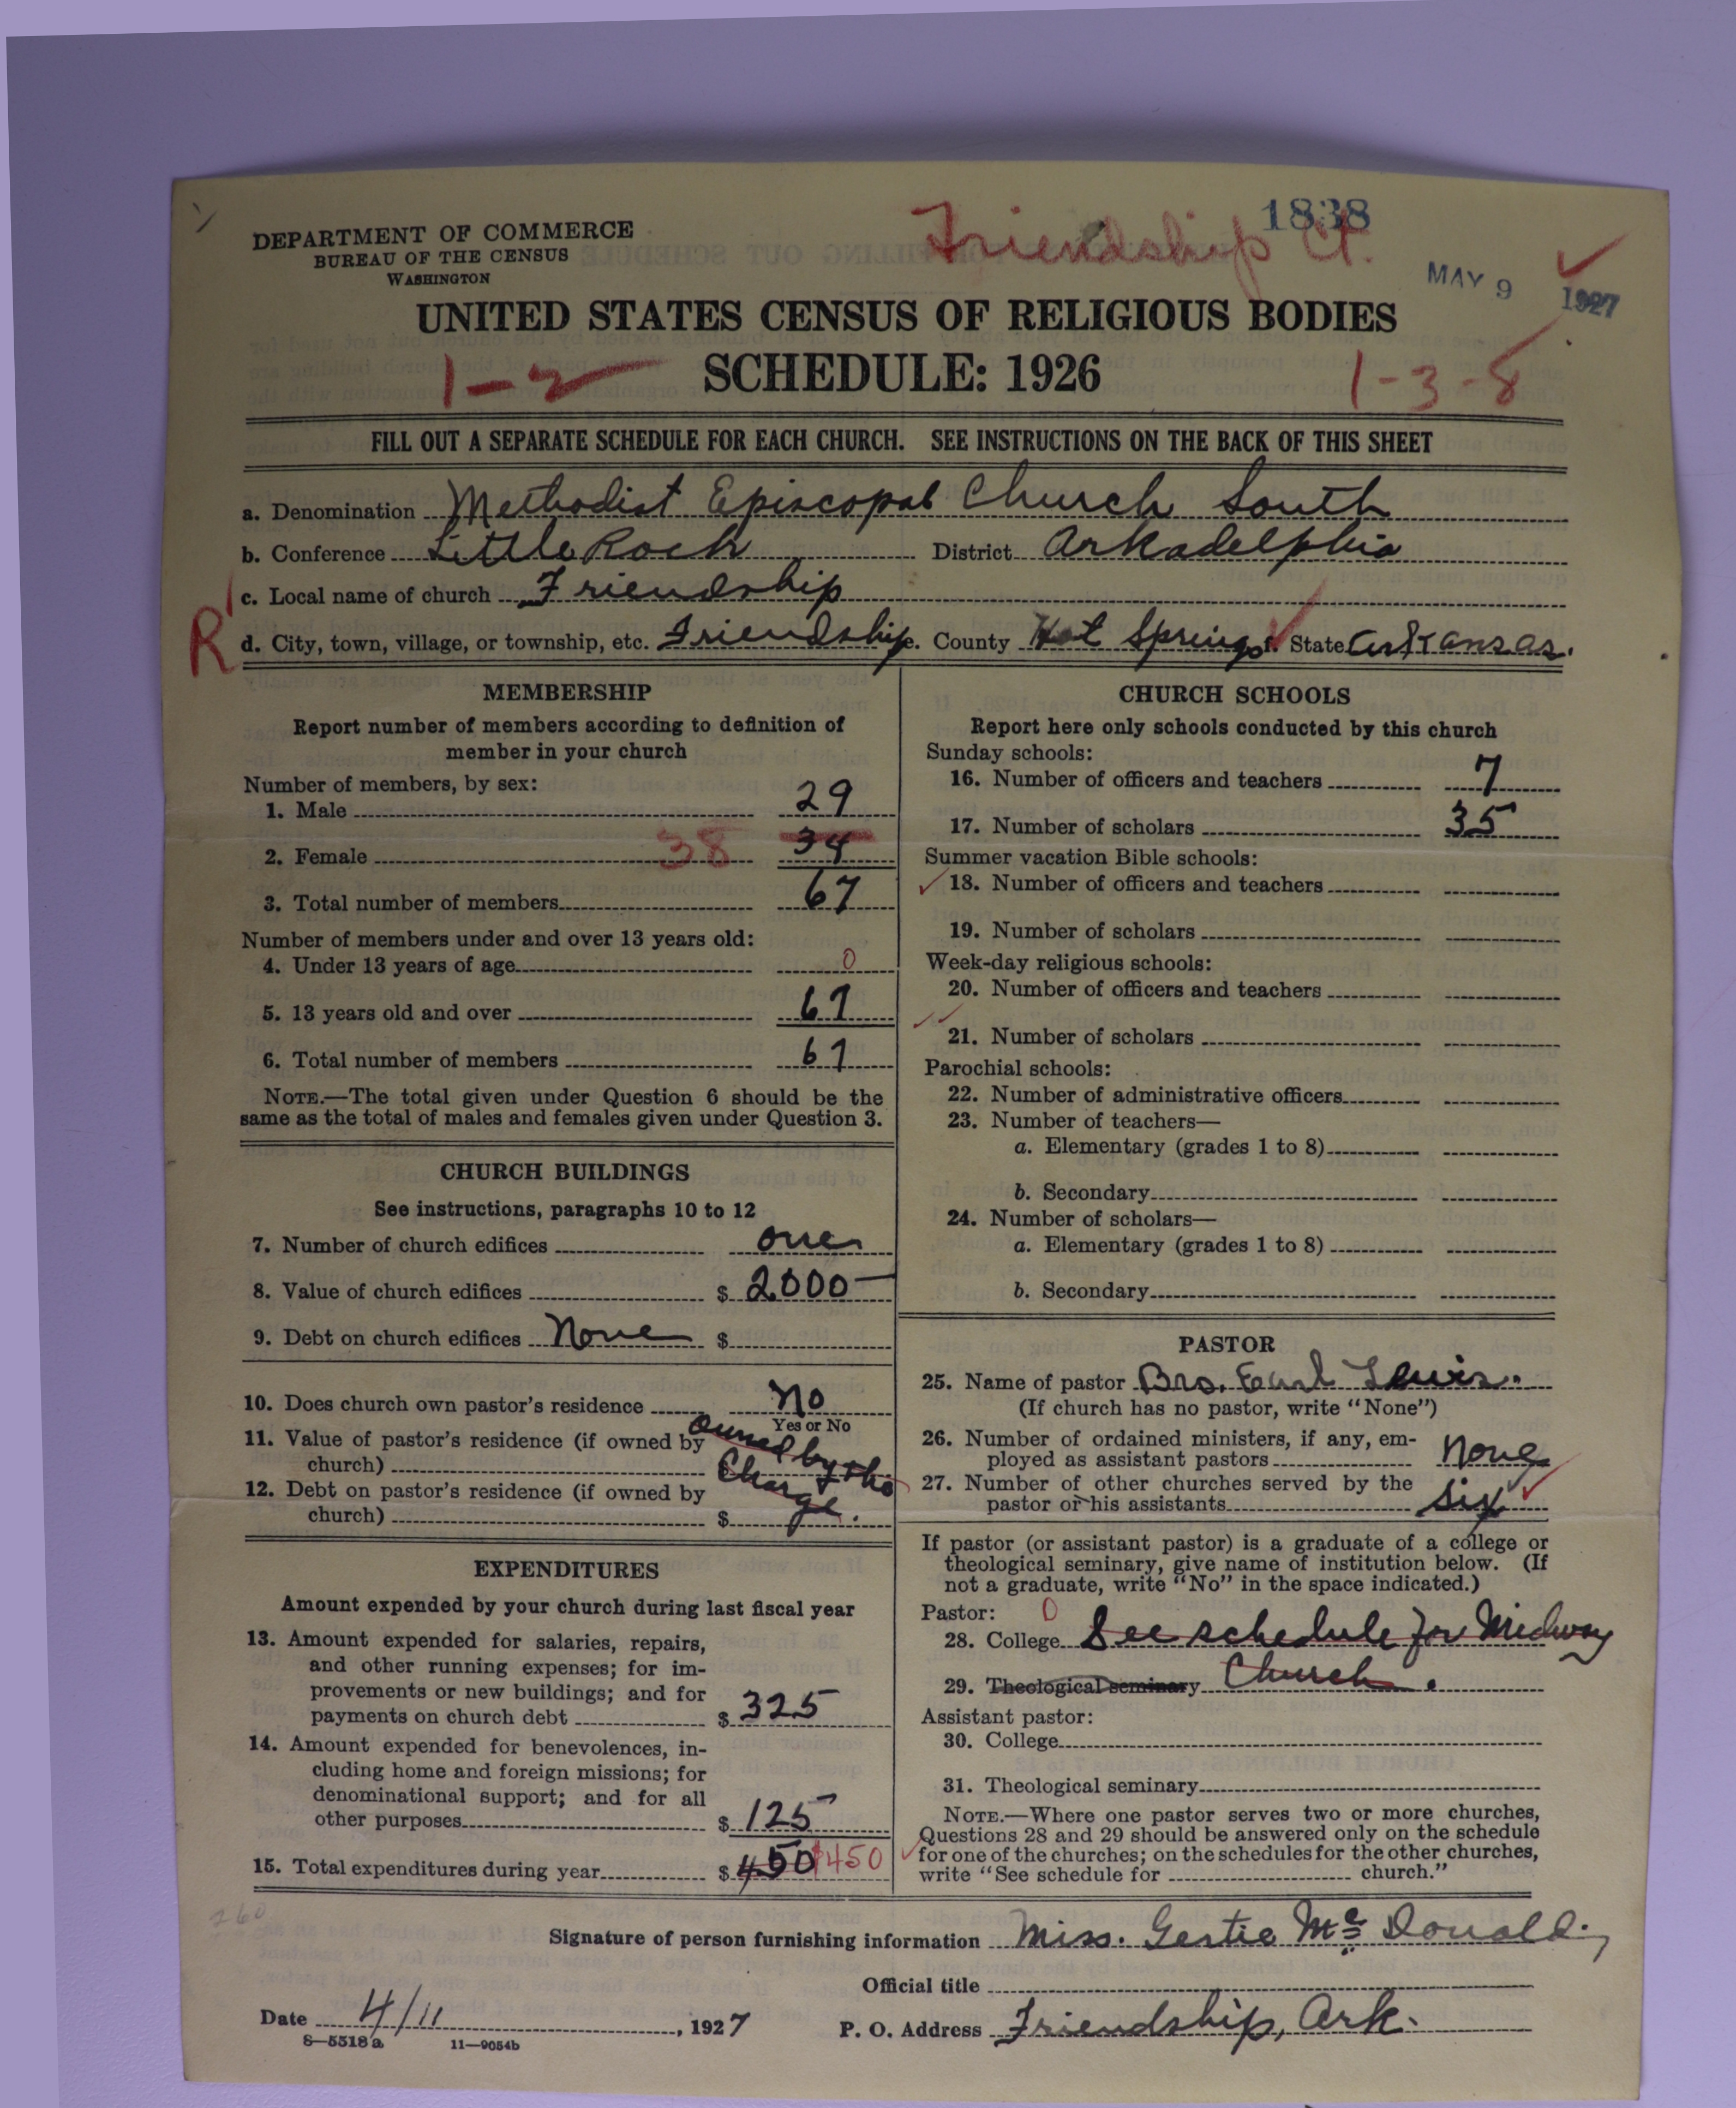 1838
Friendship Ct.
DEPARTMENT OF COMMERCE
BUREAU OF THE CENSUS
WASHINGTON
MAY 9 1927
UNITED STATES CENSUS OF RELIGIOUS BODIES
1-2 SCHEDULE: 1926 1-3-8
FILL OUT A SEPARATE SCHEDULE FOR EACH CHURCH. SEE INSTRUCTIONS ON THE BACK OF THIS SHEET
a. Denomination Methodist Episcopal Church South
b. Conference Little Rock District Arkadelphia
c. Local name of church Friendship
R d. City, town, village, or township, etc. Friendship e. County Hot Springs f. State Arkansas.
MEMBERSHIP
Report number of members according to definition of
member in your church
Number of members, by sex:
1. Male 29
2. Female 38 34
3. Total number of members 67
Number of members under and over 13 years old:
4. Under 13 years of age 0
5. 13 years old and over 67
6. Total number of members 67
NOTE.—The total given under Question 6 should be the
same as the total of males and females given under Question 3.
CHURCH BUILDINGS
See instructions, paragraphs 10 to 12
7. Number of church edifices one
8. Value of church edifices $ 2000—
9. Debt on church edifices None $
10. Does church own pastor's residence No
Yes or No
11. Value of pastor's residence (if owned by
church) $ owned by the
Charge.
12. Debt on pastor's residence (if owned by
church) $
EXPENDITURES
Amount expended by your church during last fiscal year
13. Amount expended for salaries, repairs,
and other running expenses; for im-
provements or new buildings; and for
payments on church debt $ 325
14. Amount expended for benevolences, in-
cluding home and foreign missions; for
denominational support; and for all
other purposes $ 125
15. Total expenditures during year $ 450 $450
CHURCH SCHOOLS
Report here only schools conducted by this church
Sunday schools:
16. Number of officers and teachers 7
17. Number of scholars 35
Summer vacation Bible schools:
18. Number of officers and teachers
19. Number of scholars
Week-day religious schools:
20. Number of officers and teachers
21. Number of scholars
Parochial schools:
22. Number of administrative officers
23. Number of teachers—
a. Elementary (grades 1 to 8)
b. Secondary
24. Number of scholars—
a. Elementary (grades 1 to 8)
b. Secondary
PASTOR
25. Name of pastor Bro. Earl Lewis.
(If church has no pastor, write "None")
26. Number of ordained ministers, if any, em-
ployed as assistant pastors None
27. Number of other churches served by the
pastor or his assistants Six
If pastor (or assistant pastor) is a graduate of a college or
theological seminary, give name of institution below. (If
not a graduate, write "No" in the space indicated.)
Pastor: 0
28. College See schedule for Midway
29. Theological seminary Church.
Assistant pastor:
30. College
31. Theological seminary
NOTE.—Where one pastor serves two or more churches,
Questions 28 and 29 should be answered only on the schedule
for one of the churches; on the schedules for the other churches,
write "See schedule for church."
260
Signature of person furnishing information Miss. Gertie Mc Donald.
Official title
Date 4/11, 1927 P. O. Address Friendship, Ark.
8—5518a 11—9054b